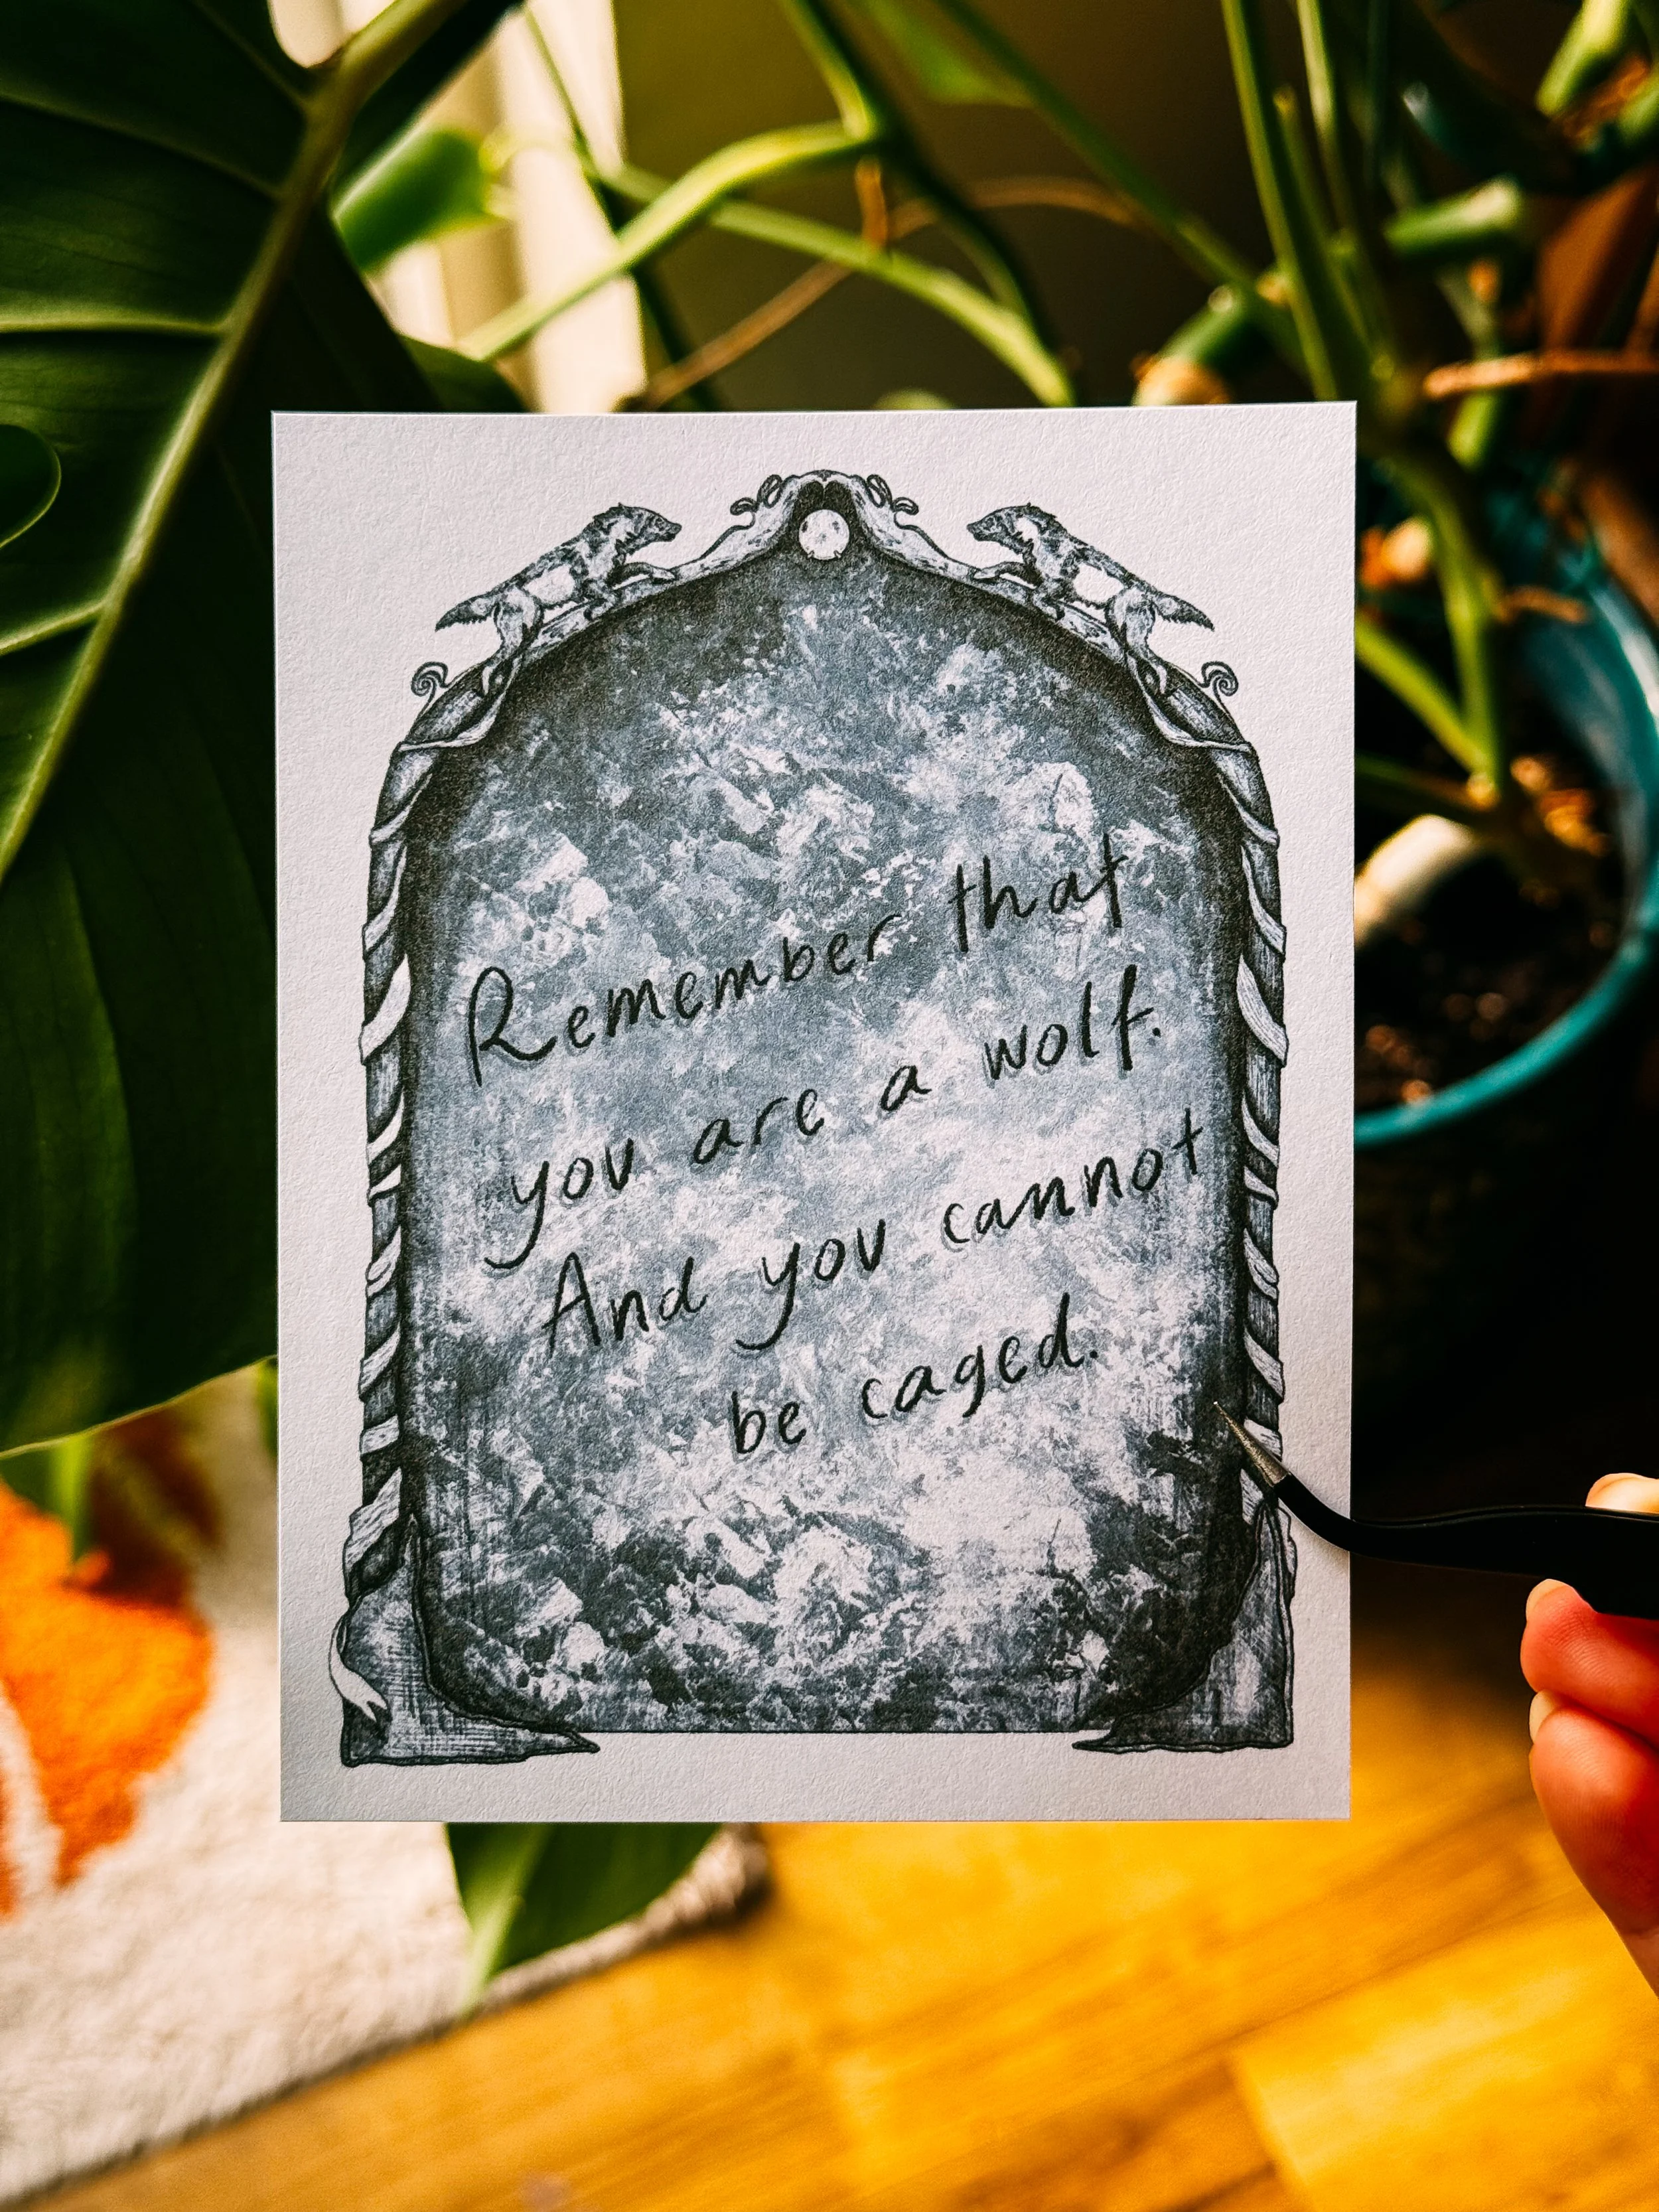 Remember that
you are a wolf.
And you cannot
be caged.